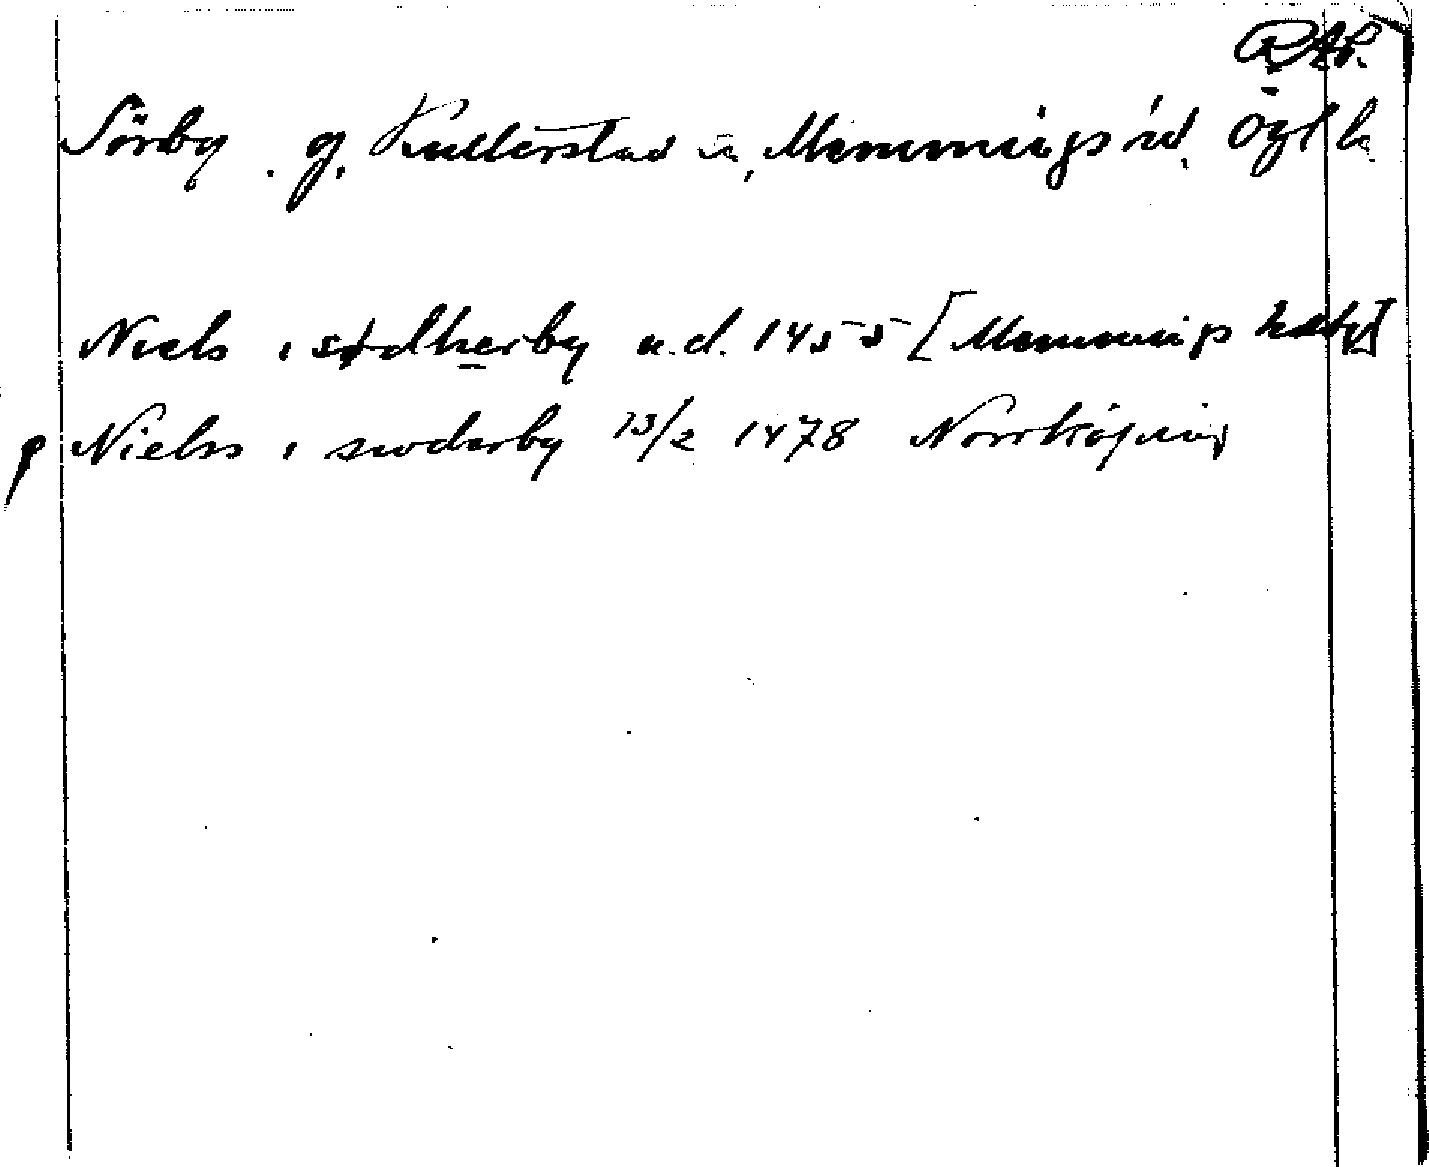 RAp.
Sörby . g, Kullerstad sn, Memmings hd. Ögl
Niels i sødherby u.d. 1455 [Memmings
p Nielss i swderby 13/2 1478 Norrköping